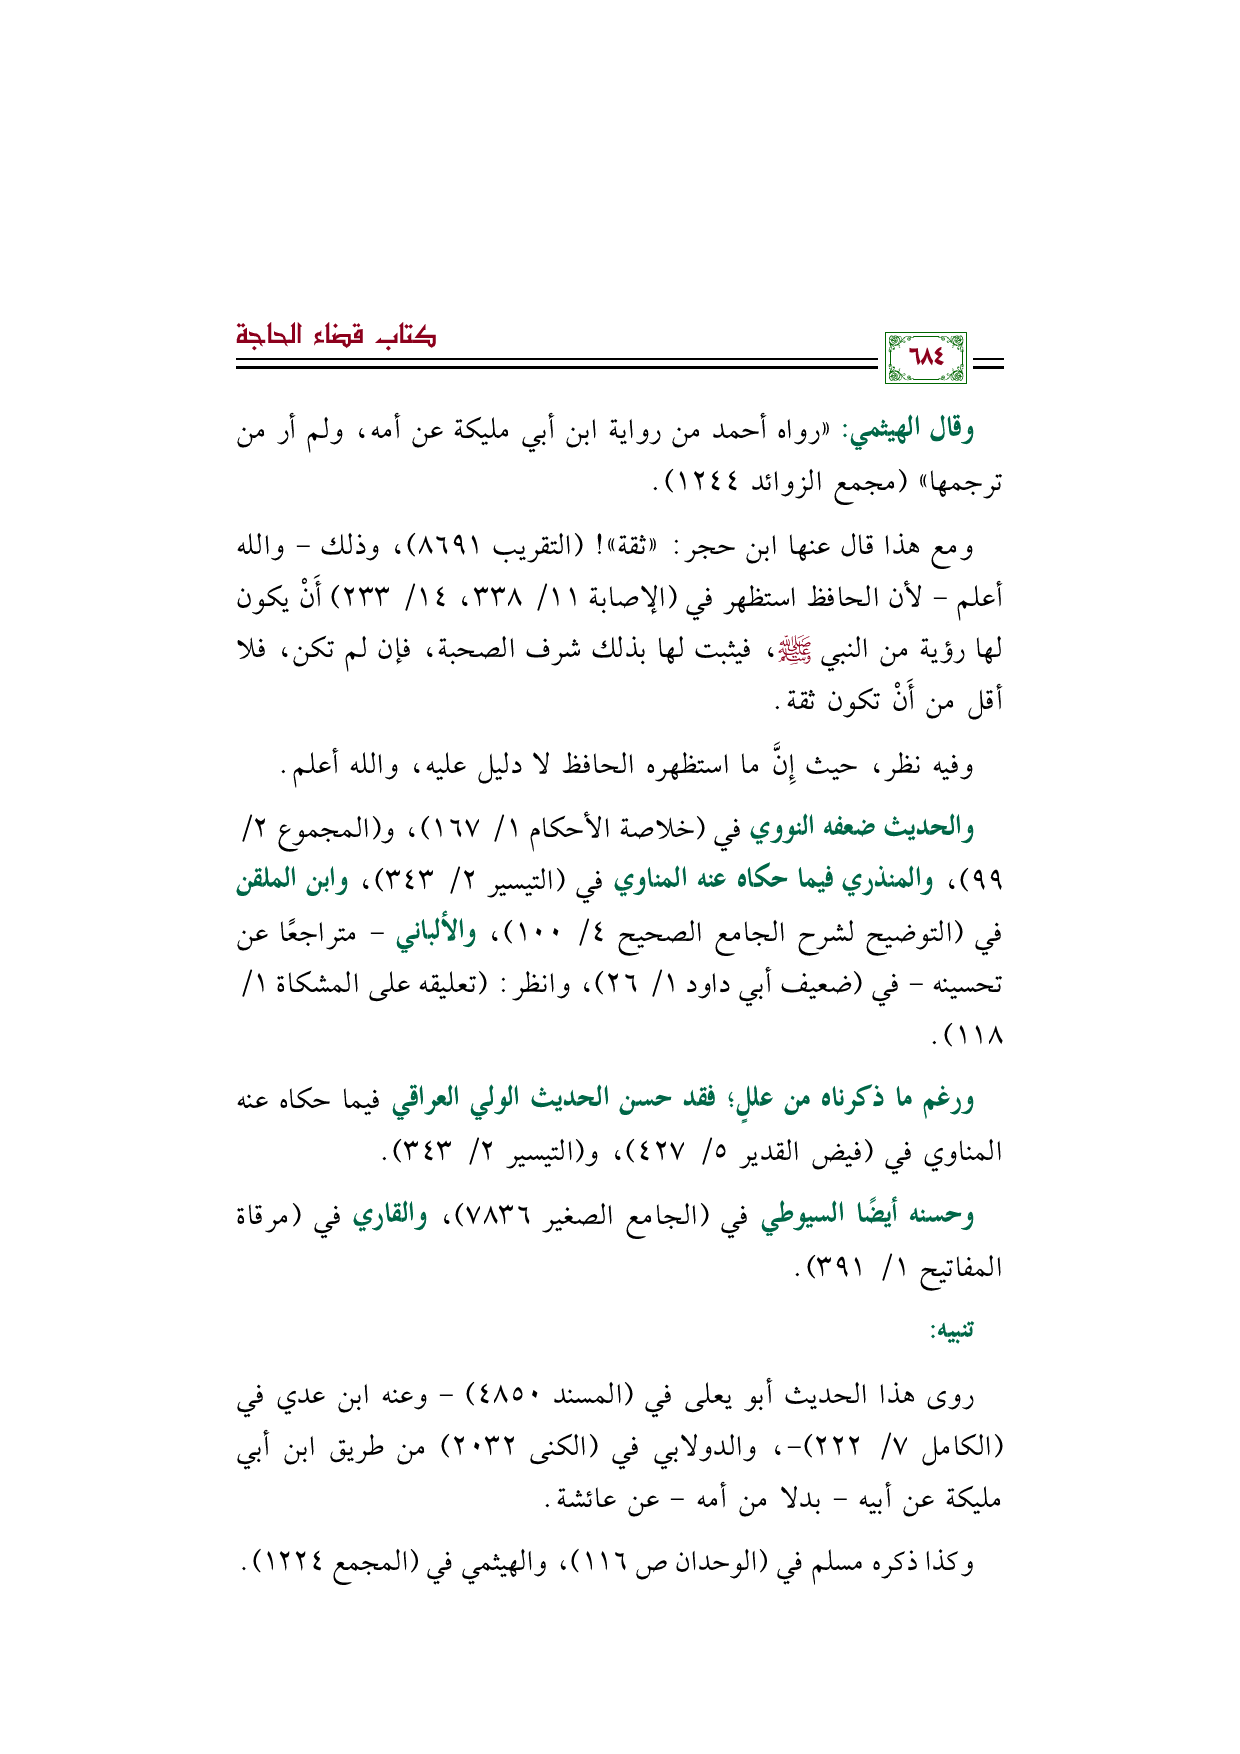 كتاب قضاء الحاجة
٦٨٤
وقال الهيثمي: «رواه أحمد من رواية ابن أبي مليكة عن أمه، ولم أر من
ترجمها» (مجمع الزوائد ١٢٤٤).
ومع هذا قال عنها ابن حجر: «ثقة»! (التقريب ٨٦٩١)، وذلك – والله
أعلم – لأن الحافظ استظهر في (الإصابة ١١/ ٣٣٨، ١٤/ ٢٣٣) أَنْ يكون
لها رؤية من النبي ﷺ، فيثبت لها بذلك شرف الصحبة، فإن لم تكن، فلا
أقل من أَنْ تكون ثقة.
وفيه نظر، حيث إِنَّ ما استظهره الحافظ لا دليل عليه، والله أعلم.
والحديث ضعفه النووي في (خلاصة الأحكام ١/ ١٦٧)، و(المجموع ٢/
٩٩)، والمنذري فيما حكاه عنه المناوي في (التيسير ٢/ ٣٤٣)، وابن الملقن
في (التوضيح لشرح الجامع الصحيح ٤/ ١٠٠)، والألباني – متراجعًا عن
تحسينه – في (ضعيف أبي داود ١/ ٢٦)، وانظر: (تعليقه على المشكاة ١/
١١٨).
ورغم ما ذكرناه من عللٍ؛ فقد حسن الحديث الولي العراقي فيما حكاه عنه
المناوي في (فيض القدير ٥/ ٤٢٧)، و(التيسير ٢/ ٣٤٣).
وحسنه أيضًا السيوطي في (الجامع الصغير ٧٨٣٦)، والقاري في (مرقاة
المفاتيح ١/ ٣٩١).
تنبيه:
روى هذا الحديث أبو يعلى في (المسند ٤٨٥٠) – وعنه ابن عدي في
(الكامل ٧/ ٢٢٢)–، والدولابي في (الكنى ٢٠٣٢) من طريق ابن أبي
مليكة عن أبيه – بدلا من أمه – عن عائشة.
وكذا ذكره مسلم في (الوحدان ص ١١٦)، والهيثمي في (المجمع ١٢٢٤).